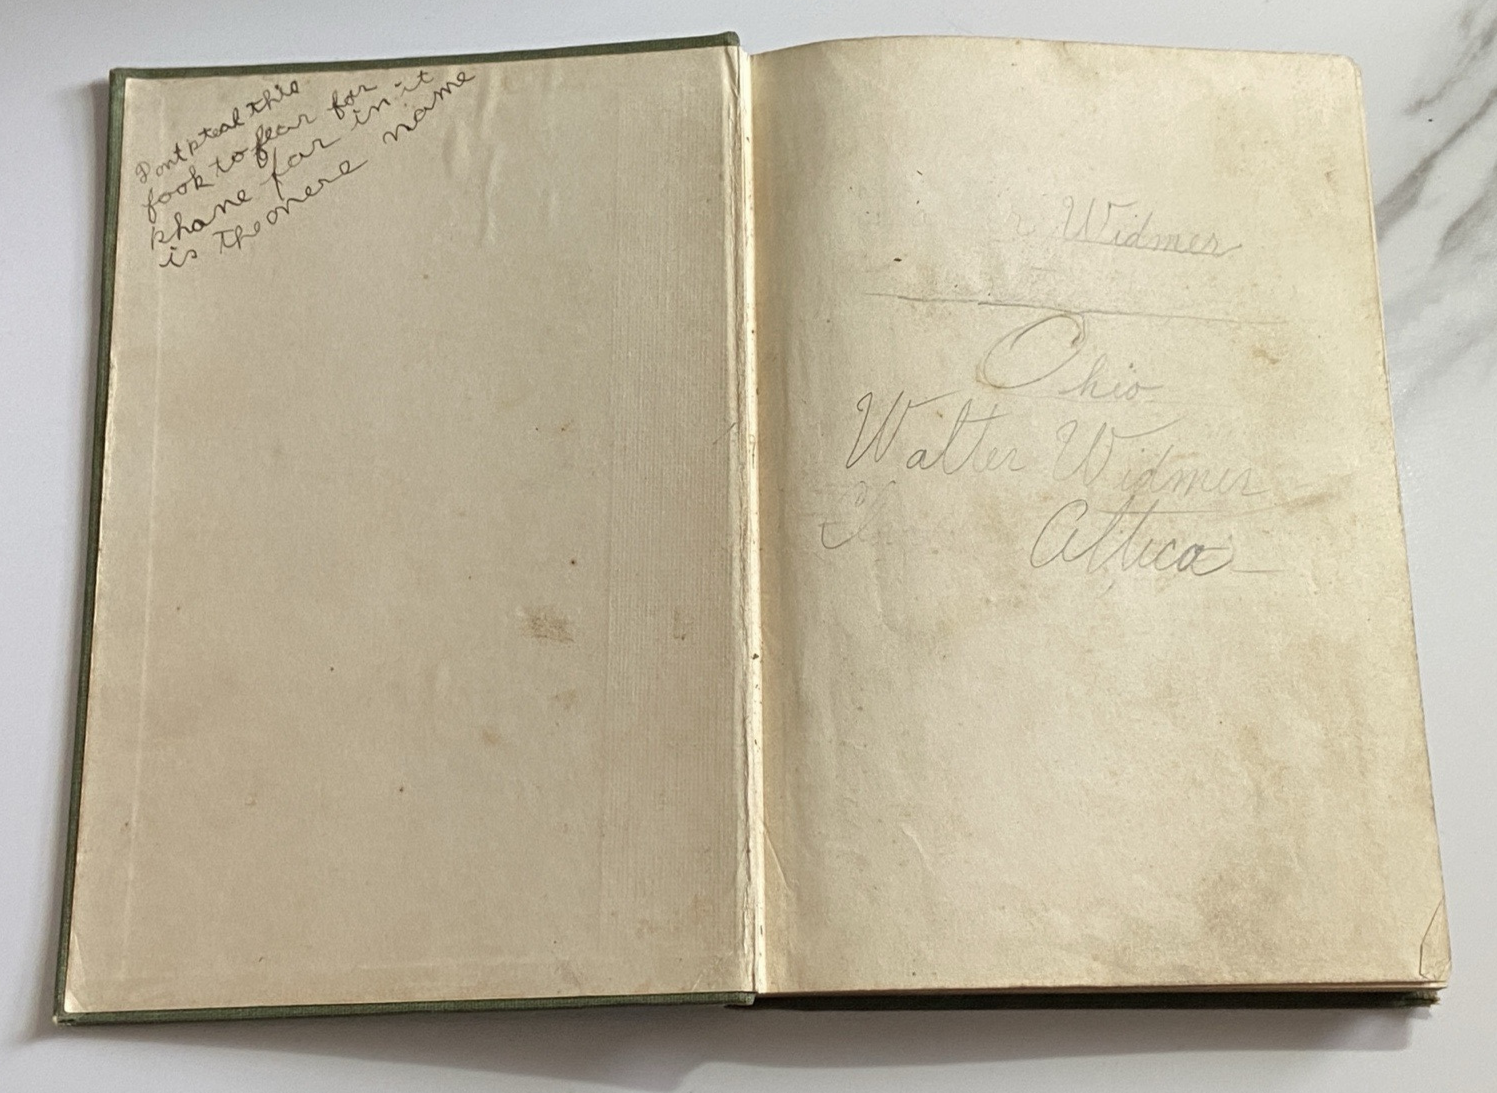 Dont steal this
fook to fear for
shame for in it
is the onere name
Widmer
Ohio
Walter Widmer
Attica